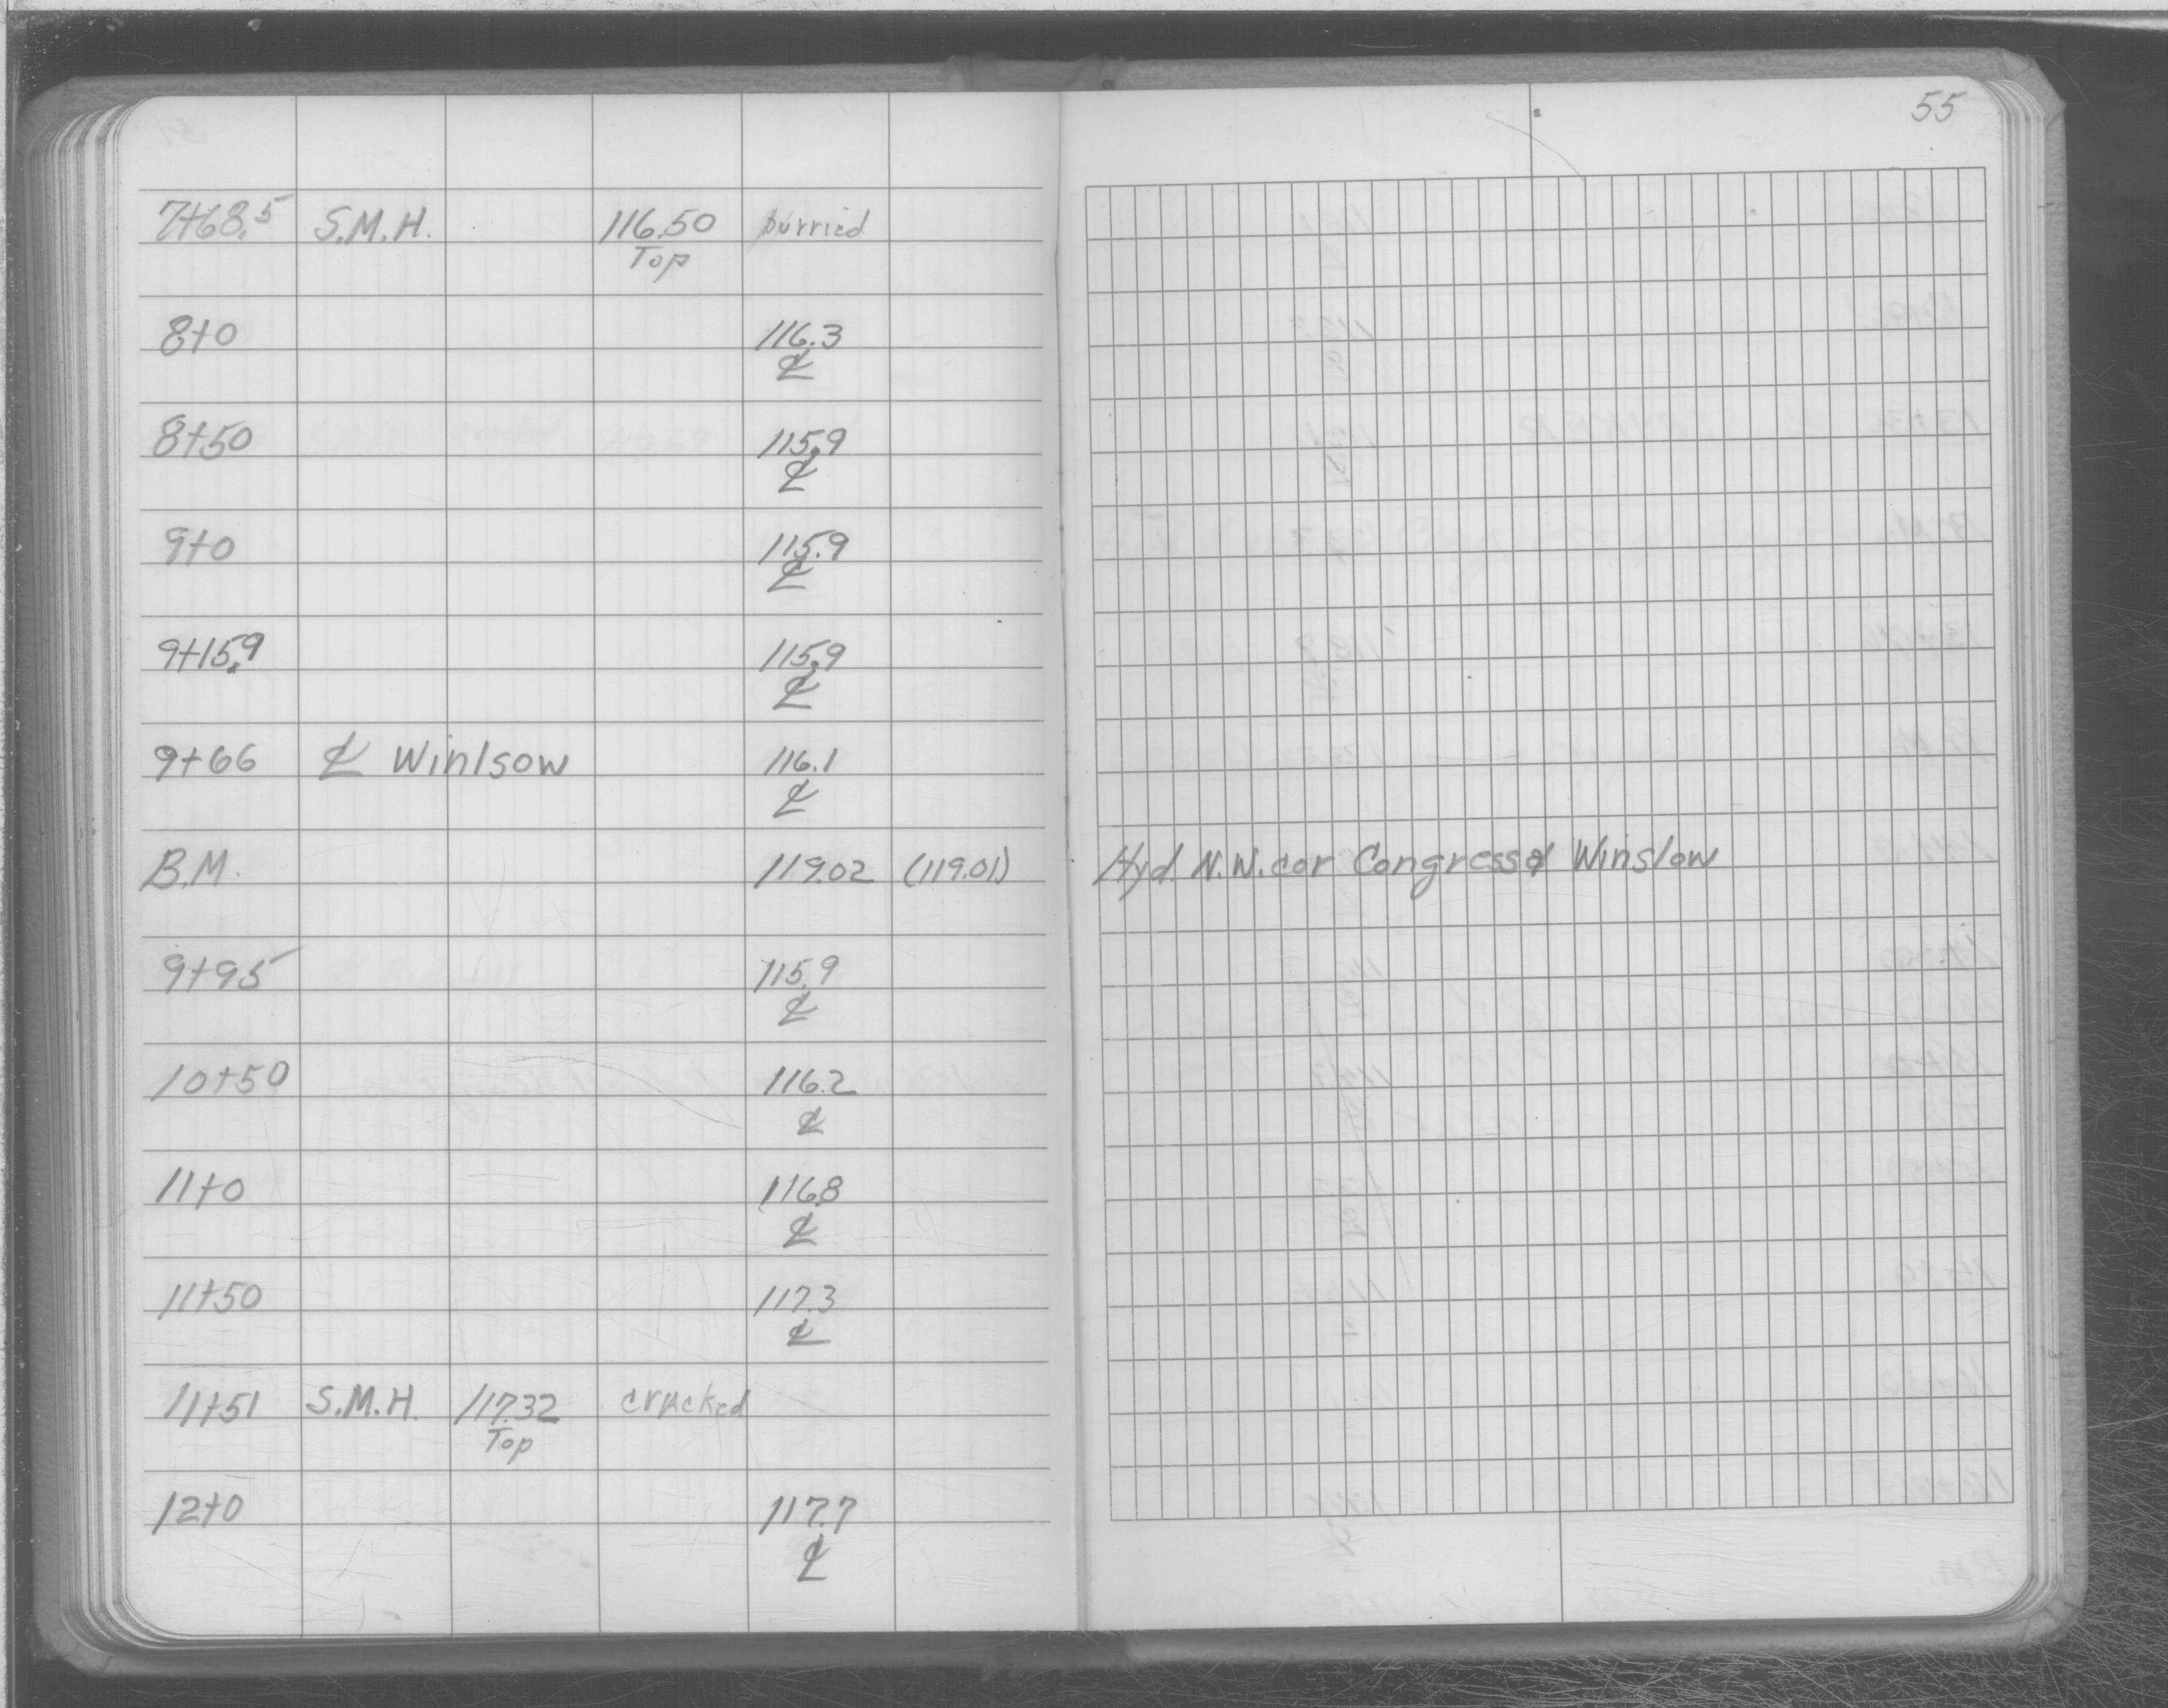 55
7+68.5 S.M.H. 116.50 burried
Top
8+0 116.3
℄
8+50 115.9
℄
9+0 115.9
℄
9+15.9 115.9
℄
9+66 ℄ Winlsow 116.1
℄
B.M. 119.02 (119.01) Hyd. N.W. cor Congress & Winslow
9+95 115.9
℄
10+50 116.2
℄
11+0 116.8
℄
11+50 117.3
℄
11+51 S.M.H. 117.32 cracked
Top
12+0 117.7
℄